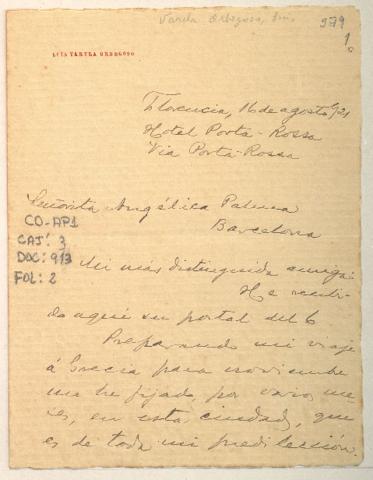 Varela Orbegoso, Luis
979
1
LUIS VARELA ORBEGOSO
Florencia, 16 de agosto/21
Hotel Porta-Rossa
Via Porta-Rossa
Señorita Angélica Palma
Barcelona
CO-AP1
CAJ: 3
DOC: 913
FOL: 2
Mi más distinguida amiga:
He recibi-
do aquí su postal del 6
Preparando mi viaje
á Grecia para noviembre
me he fijado, por varios me
ses, en esta ciudad, que
es de toda mi predilección.